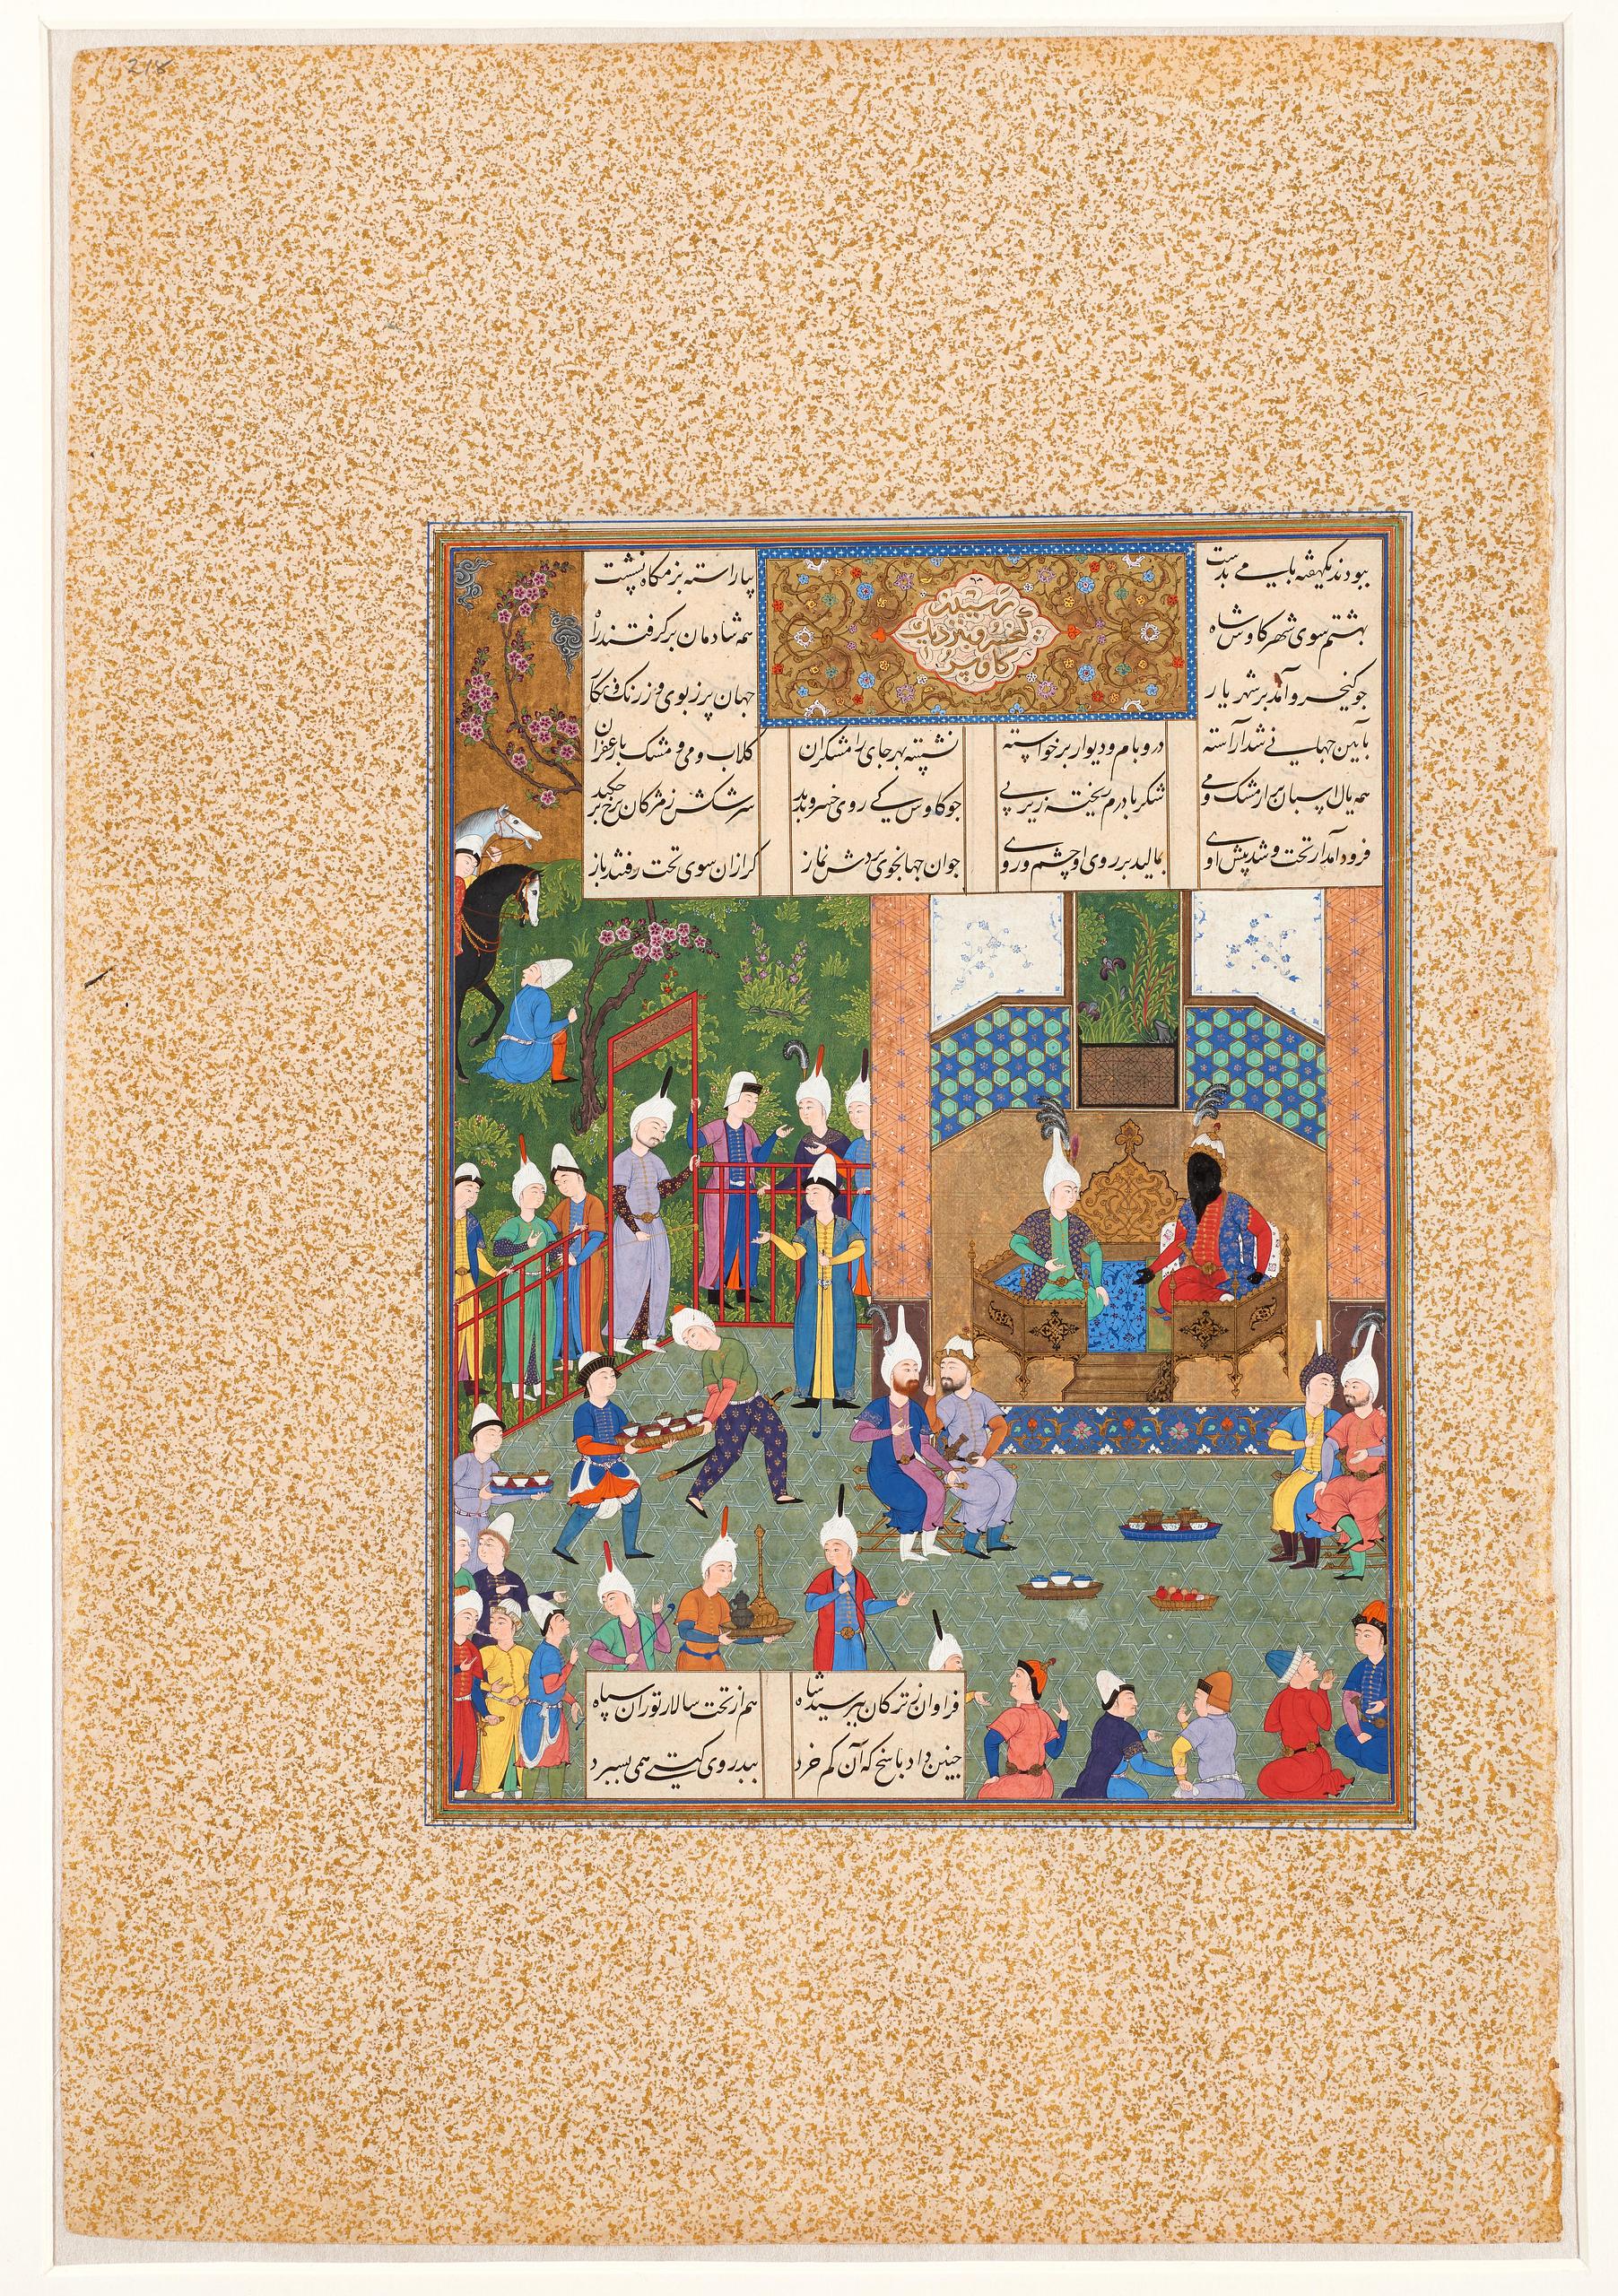 ببودند یکهفته با می بدست بیاراسته بزمگاه نشست
بهشتم سوی شهر کاوس شاه همه شادمان برگرفتند راه
چو کیخسرو آمد بر شهریار جهان پر ز بوی و ز رنگ و نگار
رسیدن
کیخسرو بنزدیک
کاوس
بآیین جهانی شد آراسته در و بام و دیوار پر خواسته نشسته بهر جای رامشگران گلاب و می و مشک با زعفران
همه یال اسپان پر از مشک و می شکر با درم ریخته زیر پی چو کاوس کی روی خسرو بدید سرشکش ز مژگان برخ بر چکید
فرود آمد از تخت و شد پیش اوی بمالید بر روی او چشم و روی جوان جهانجوی بردش نماز گرازان سوی تخت رفتند باز
فراوان ز ترکان بپرسید شاه هم از تخت سالار توران سپاه
چنین داد پاسخ که آن کم خرد ببد روی گیتی همی بسپرد